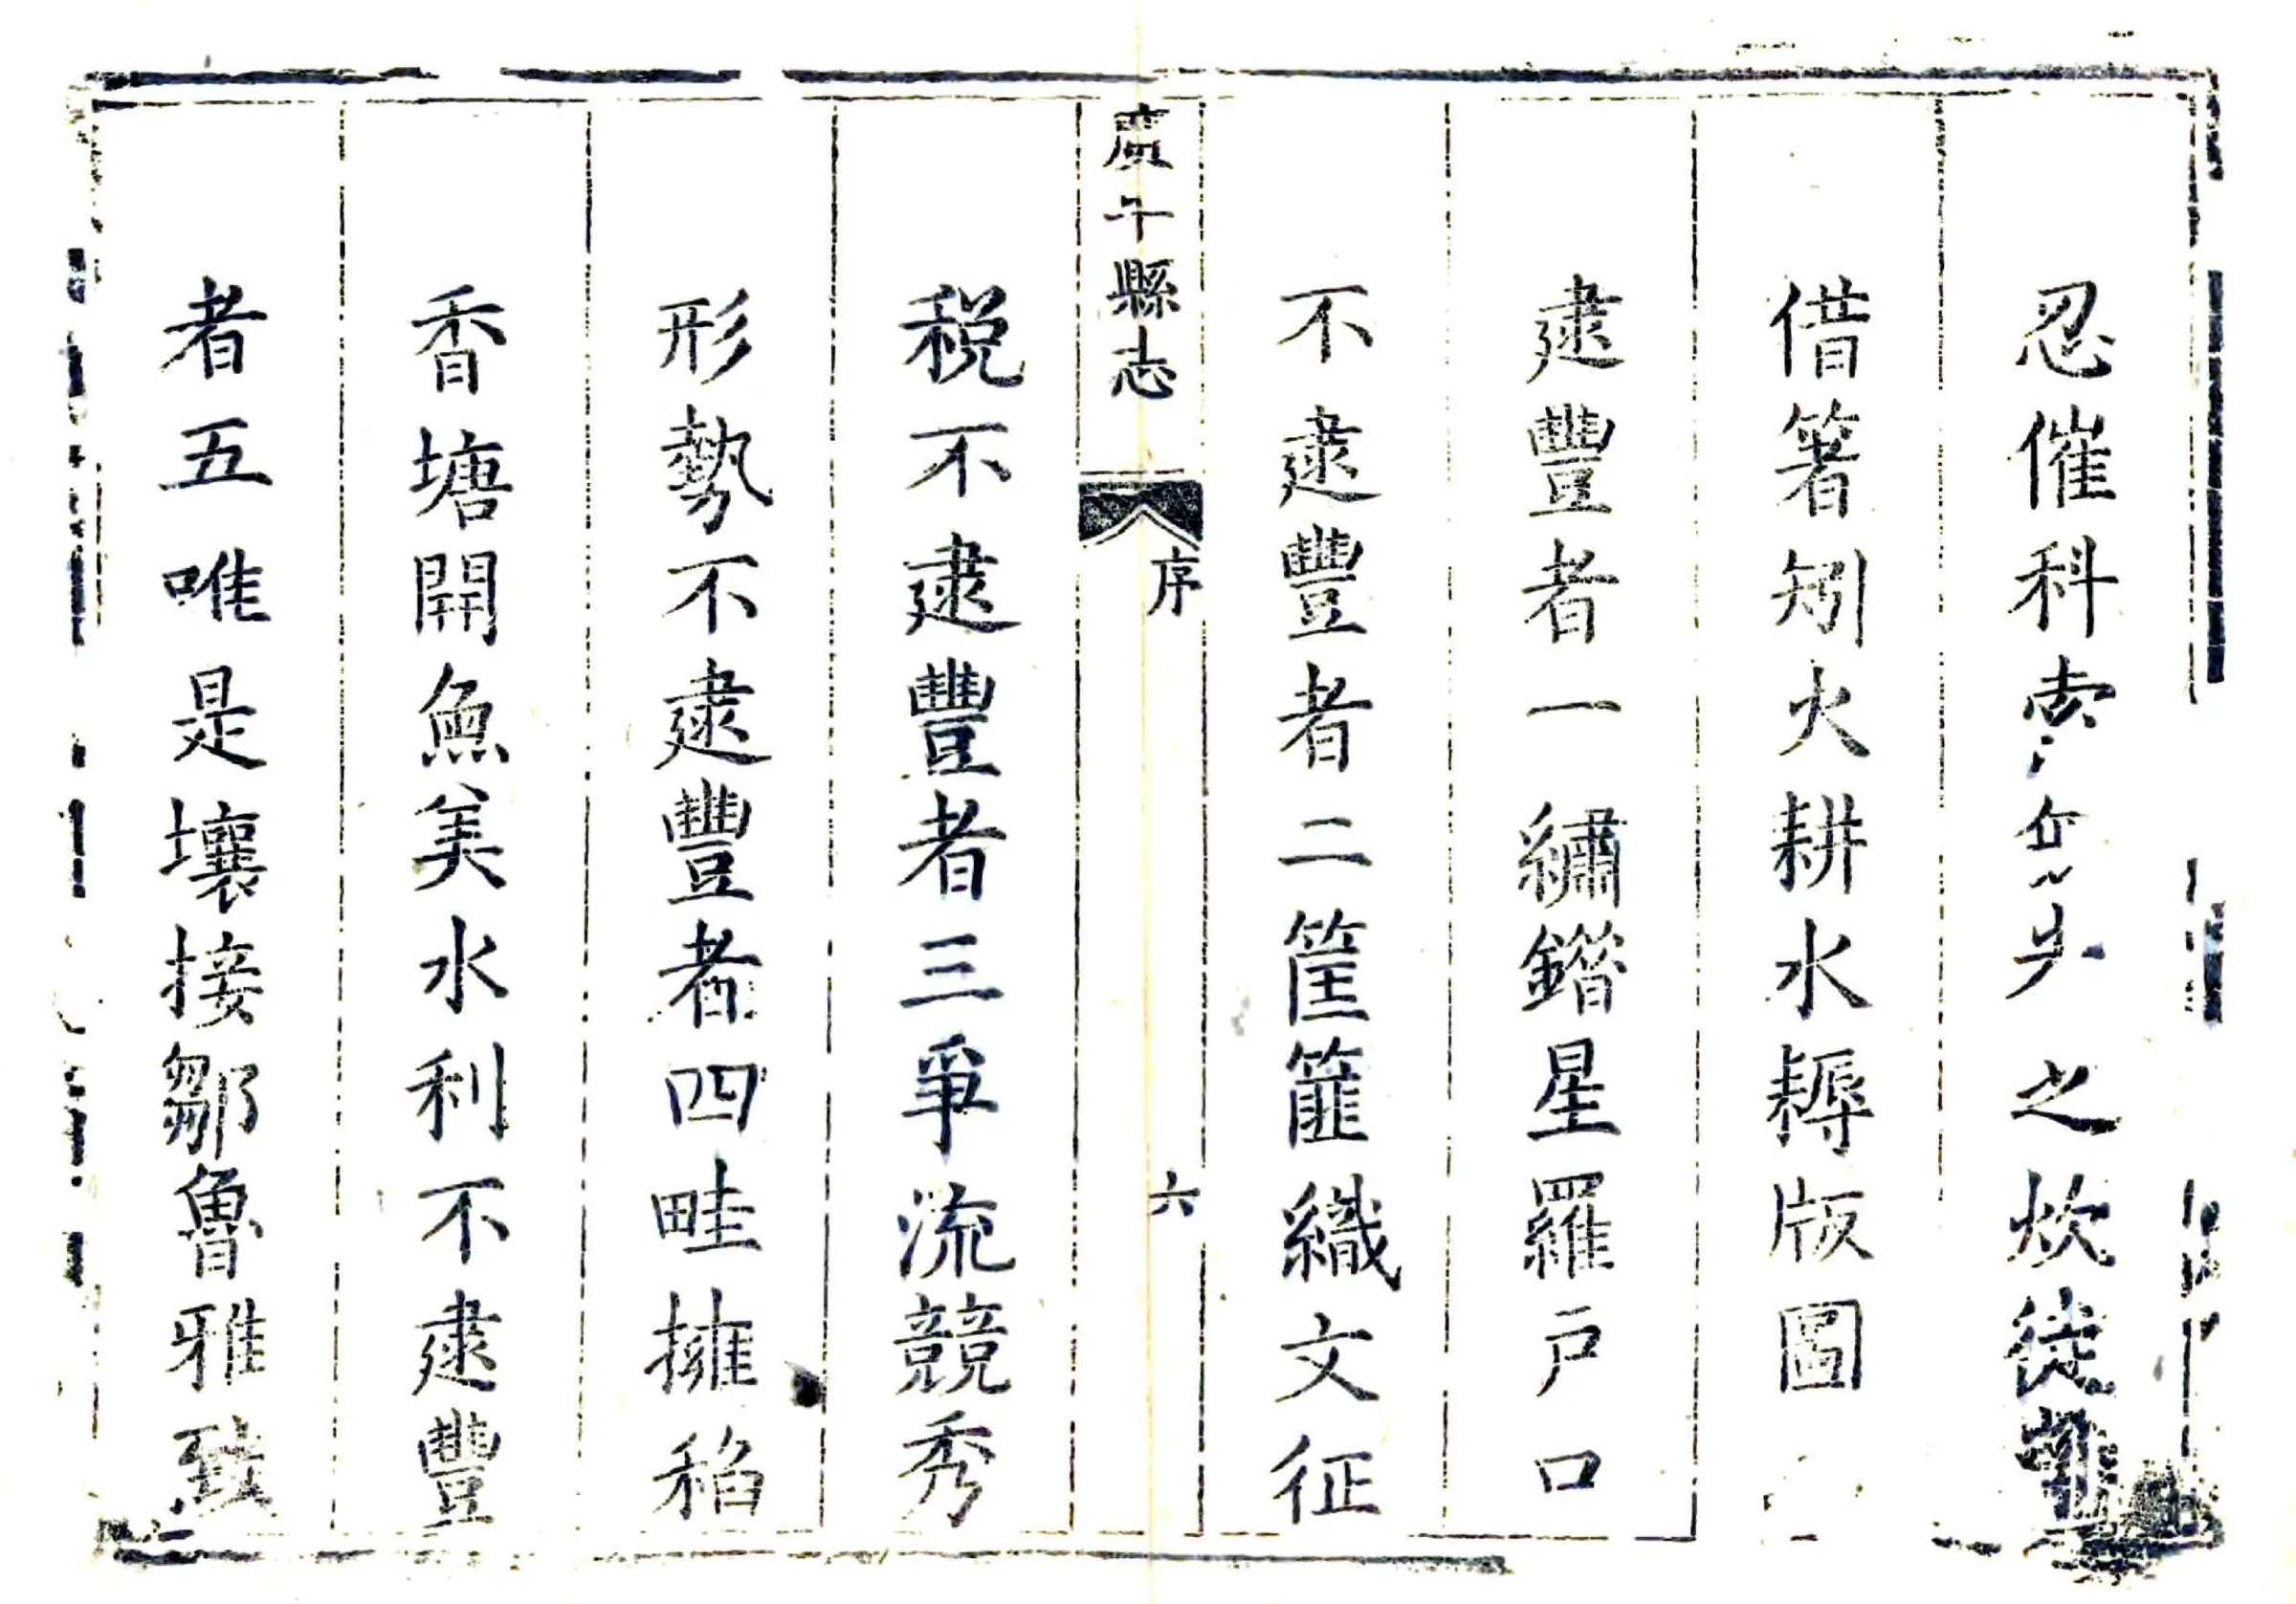 忍催科索之炊徒
借箸矧火耕水耨版圖
逮豐者一繡錯星羅戶口
不逮豐者二筐篚織文征
廬干縣志 序 六
稅不逮豐者三爭流競秀
形勢不逮豐者四畦擁稻
香塘開魚美水利不逮豐
者五唯是壤接鄒魯雅致